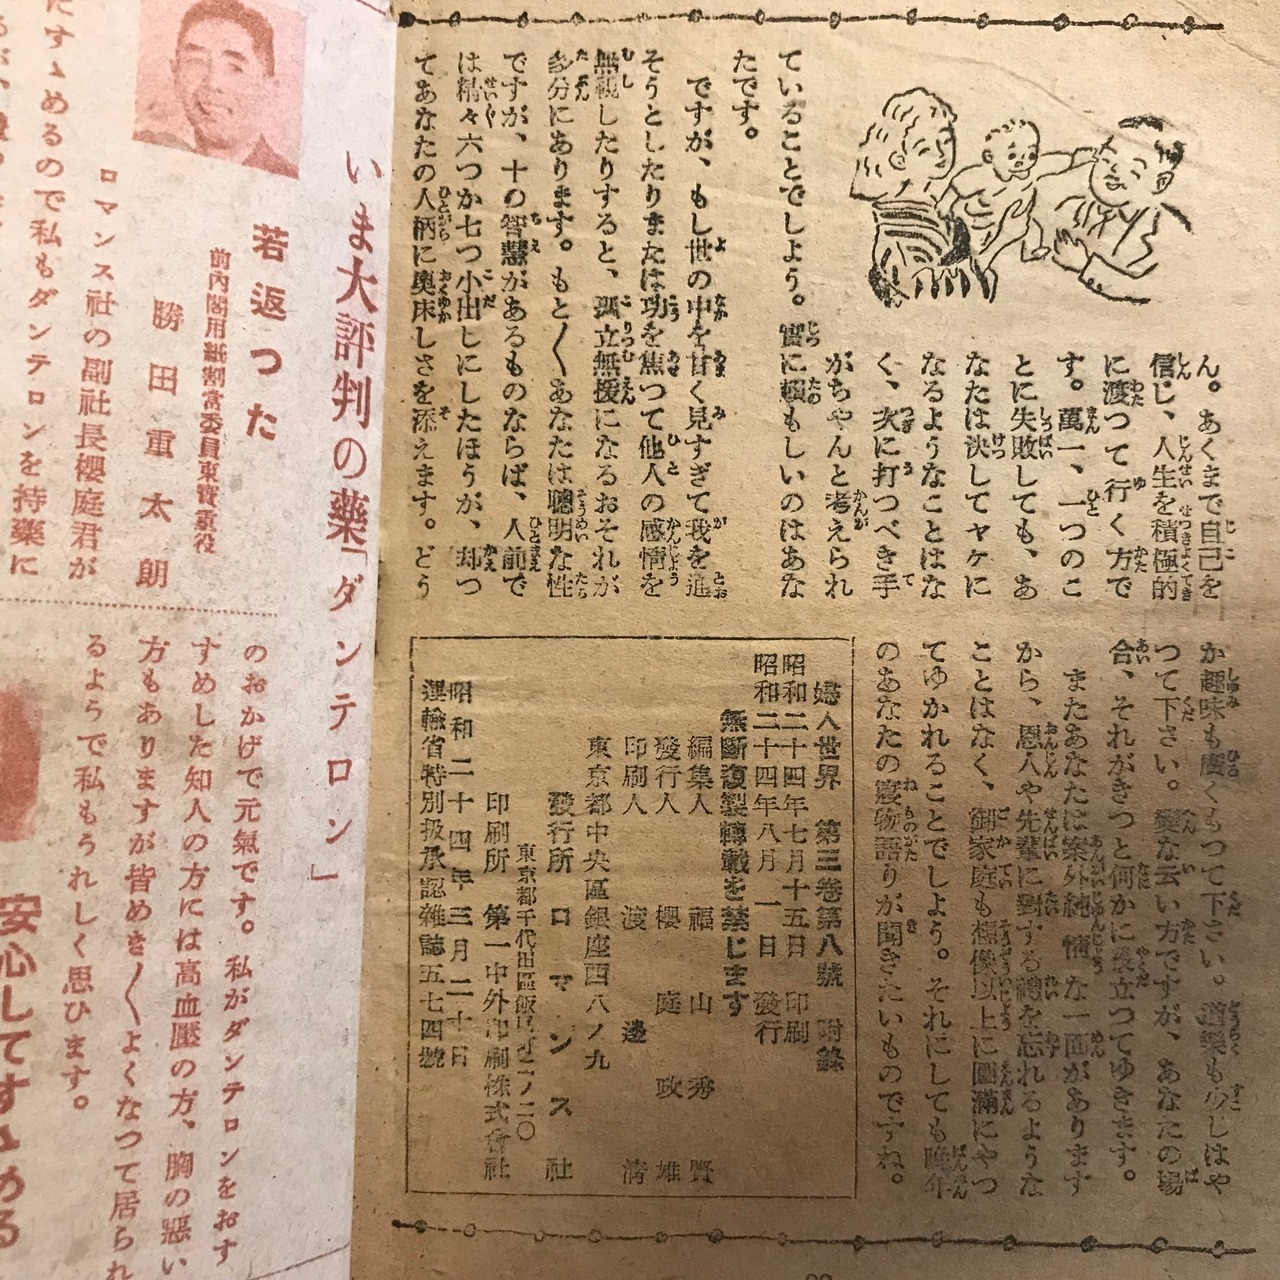 ん。あくまで自己を
信じ、人生を積極的
に渡つて行く方で
す。萬一、一つのこ
とに失敗しても、あ
なたは決してヤケに
なるようなことはな
く、次に打つべき手
がちやんと考えられ
ていることでしよう。實に頼もしいのはあな
たです。
ですが、もし世の中を甘く見すぎて我を通
そうとしたりまたは功を焦つて他人の感情を
無視したりすると、孤立無援になるおそれが
多分にあります。もと〱あなたは聰明な性
ですが、十の智慧があるものならば、人前で
は精々六つか七つ小出しにしたほうが、却つ
てあなたの人柄に奥床しさを添えます。どう
か趣味も廣くもつて下さい。道樂も少しはや
つて下さい。變な云い方ですが、あなたの場
合、それがきつと何かに役立つてゆきます。
またあなたは案外純情な一面があります
から、恩人や先輩に對する禮を忘れるような
ことはなく、御家庭も想像以上に圓滿にやつ
てゆかれることでしよう。それにしても晩年
のあなたの寝物語りが聞きたいものですね。
婦人世界　第三卷第八號　附錄
昭和二十四年七月十五日　印刷
昭和二十四年八月一日　發行
無斷復製轉載を禁じます
編集人　福山秀賢
發行人　櫻庭政雄
印刷人　渡邊清
東京都中央區銀座西八ノ九
發行所　ロマンス社
東京都千代田區飯田町二ノ二〇
印刷所　第一中外印刷株式會社
昭和二十四年三月二十日
運輸省特別扱承認雜誌五七四號
いま大評判の藥「ダンテロン」
若返つた
前内閣用紙割當委員東寶重役
勝田重太朗
ロマンス社の副社長櫻庭君が
たすゝめるので私もダンテロンを持藥に
のおかげで元氣です。私がダンテロンをおす
すめした知人の方には高血壓の方、胸の惡い
方もありますが皆めき〱よくなつて居られ
るようで私もうれしく思ひます。
安心してすゝめる